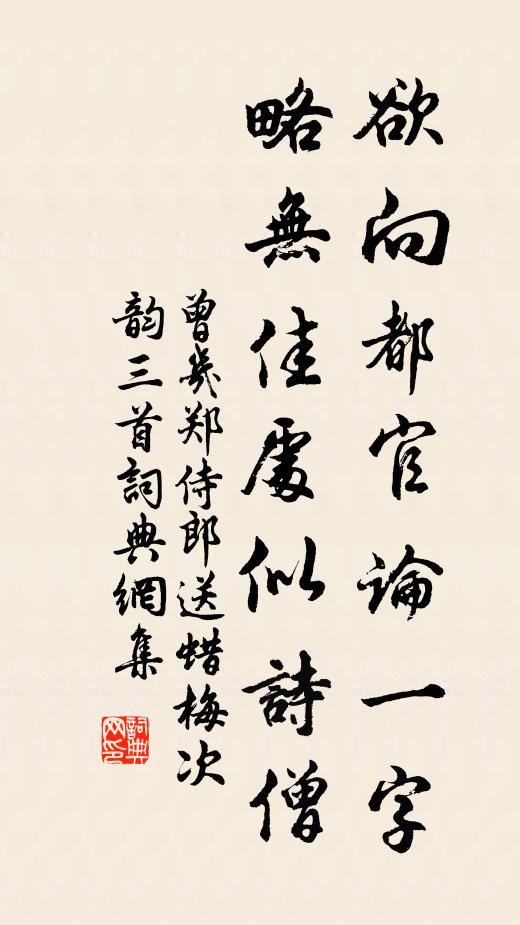 欲向都官論一字
略無佳處似詩僧
曾幾郑侍郎送蜡梅次
韵三首詞典網集
詞典
网印